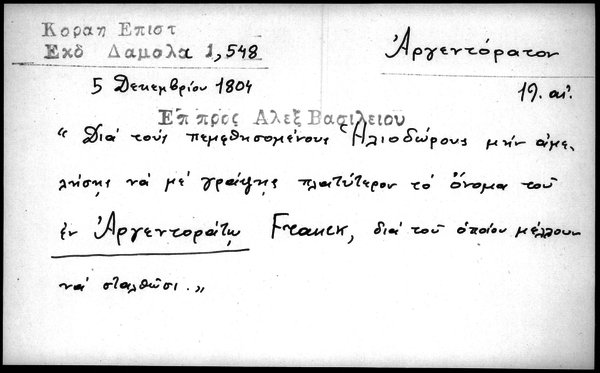 Κοραη Επιστ
Εκδ Δαμαλα 1,548
Ἀργεντόρατον
5 Δεκεμβρίου 1804
19. αἰ.
Επ προς Αλεξ Βασιλειου
“ Διά τούς πεμφθησομένους Ἡλιοδώρους μήν ἀμε-
λήσῃς νά μέ γράψῃς πλατύτερον τό ὄνομα τοῦ
ἐν Ἀργεντοράτῳ Franck, διά τοῦ ὁποίου μέλλουν
νά σταλθῶσι. „